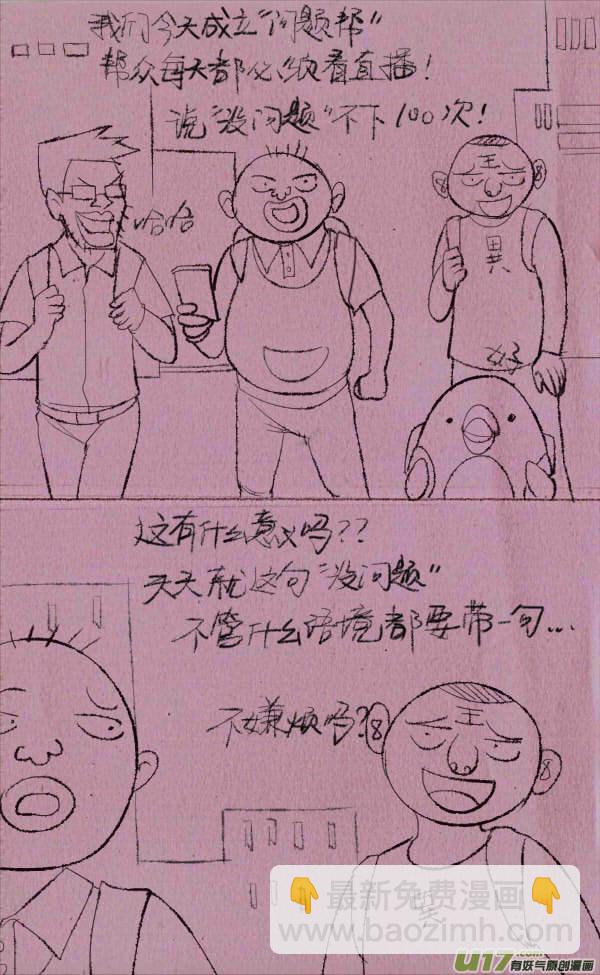 我们今天成立"问题帮"
帮众每天都必须看直播!
说"没问题"不下100次!
哈哈
王
異
好
这有什么意义吗??
天天就这句"没问题"
不管什么语境都要带一句...
不嫌烦吗?
王
👇最新免费漫画👇
www.baozimh.com
U17.com
有妖气原创漫画